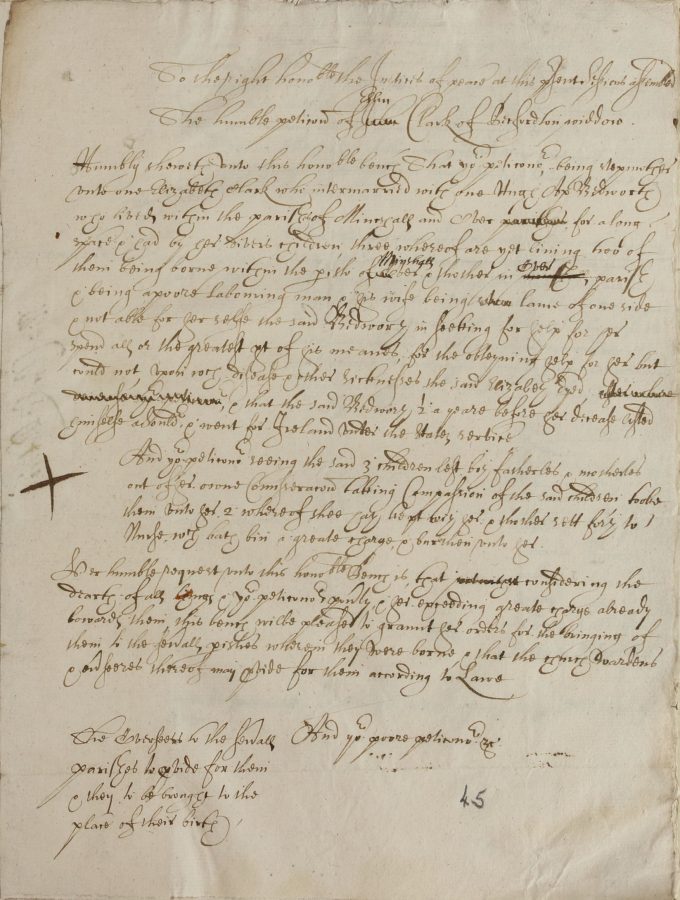 To the right hono:ble the Justices of peace at this pſent Seſsions aſsembled
The humble peticon of Ellin Clark of Richardson widdow.
Humbly sheweth unto this hono:ble bench That yo:r peticono:r being stepmother
unto one Elizabeth Clark who intermarried with one Hugh Ap Bedworth
who lived within the pariſh of Minshall and Over for a long
space & had by her divers children three whereof are yet living two of
them being borne within the piſh of Minshall & thother in Over pariſh
& being a poore labouring man & his wife being lame of one side
& not able for her selfe the said Bedworth in seeking for help for her
spend all or the greatest pt of his meanes for the obteyning help for her but
could not, upon wch disease & other sicknesses the said Elizabeth dyed
& that the said Bedworth a yeare before her decease listed
himselfe a souldr & went for Ireland under the States service
And yo:r peticono:r seeing the said 3 children left both fatherles & motherles
out of her owne Comiseracon taking Compassion of the said children tooke
them unto her 2 whereof shee hath kept with her & thother sett forth to
Nurse wch hath bin a greate charge & burthen unto her.
Her humble request unto this hono:ble Bench is, that considering the
dearth of all things & yo:r peticono:rs pov'ty & her exceeding greate charge already
towards them, this bench wilbe pleased to graunt her orders for the bringing of
them to the sev'all piſhes wherein they were borne & that the Church wardens
& ov'seeres thereof may pvide for them according to Lawe
And yo:r poore peticono:r &c
The Overseers to the sev'all
pariſhes to pvide for them
& they to be brought to the
place of their birth
45